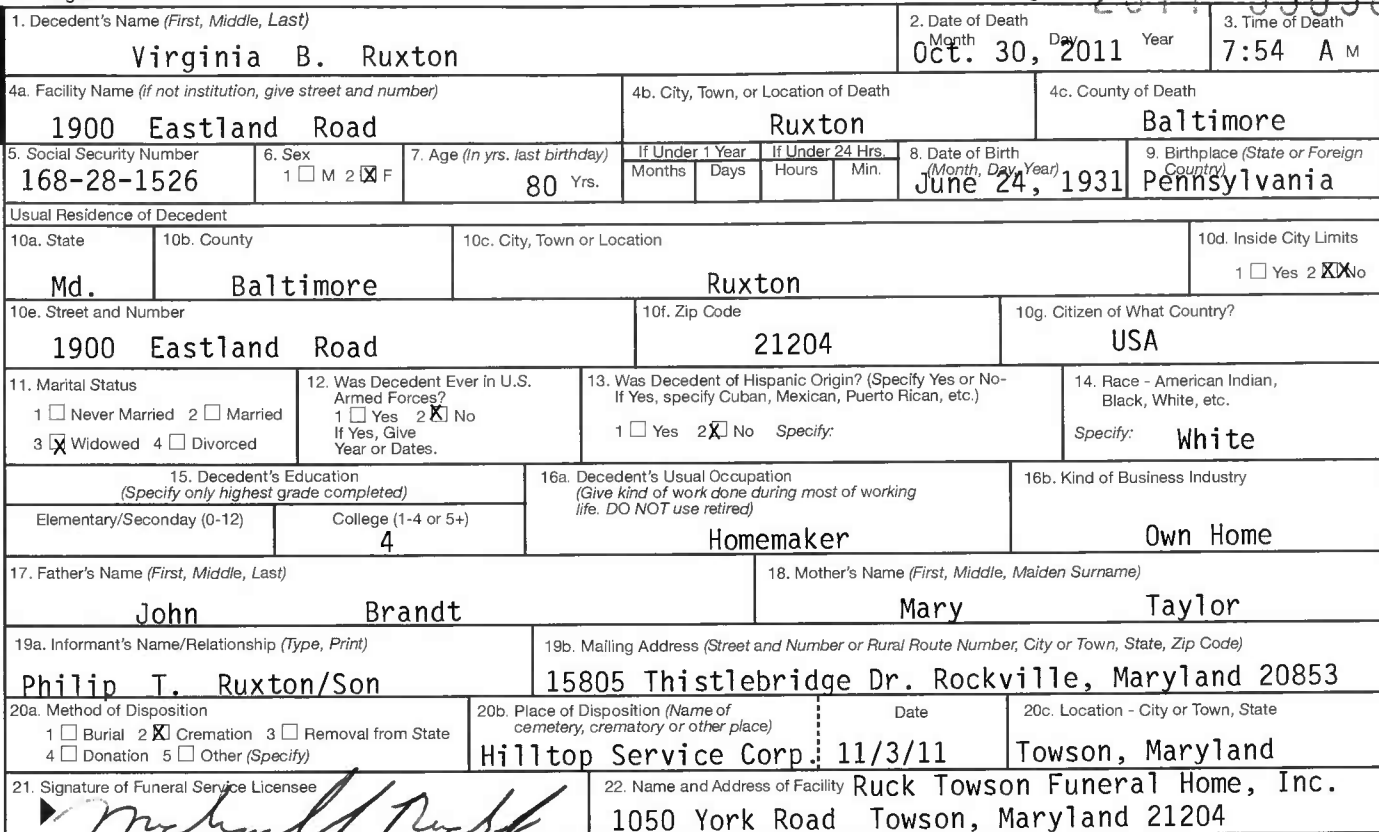 1. Decedent's Name (First, Middle, Last)
Virginia B. Ruxton
2. Date of Death
Month Day Year
Oct. 30, 2011
3. Time of Death
7:54 A M
4a. Facility Name (if not institution, give street and number)
1900 Eastland Road
4b. City, Town, or Location of Death
Ruxton
4c. County of Death
Baltimore
5. Social Security Number
168-28-1526
6. Sex
1 ☐ M 2 ☒ F
7. Age (In yrs. last birthday)
80 Yrs.
If Under 1 Year
Months Days
If Under 24 Hrs.
Hours Min.
8. Date of Birth
(Month, Day, Year)
June 24, 1931
9. Birthplace (State or Foreign
Country)
Pennsylvania
Usual Residence of Decedent
10a. State
Md.
10b. County
Baltimore
10c. City, Town or Location
Ruxton
10d. Inside City Limits
1 ☐ Yes 2 ☒ No
10e. Street and Number
1900 Eastland Road
10f. Zip Code
21204
10g. Citizen of What Country?
USA
11. Marital Status
1 ☐ Never Married 2 ☐ Married
3 ☒ Widowed 4 ☐ Divorced
12. Was Decedent Ever in U.S.
Armed Forces?
1 ☐ Yes 2 ☒ No
If Yes, Give
Year or Dates.
13. Was Decedent of Hispanic Origin? (Specify Yes or No-
If Yes, specify Cuban, Mexican, Puerto Rican, etc.)
1 ☐ Yes 2 ☒ No Specify:
14. Race - American Indian,
Black, White, etc.
Specify: White
15. Decedent's Education
(Specify only highest grade completed)
Elementary/Seconday (0-12)
College (1-4 or 5+)
4
16a. Decedent's Usual Occupation
(Give kind of work done during most of working
life. DO NOT use retired)
Homemaker
16b. Kind of Business Industry
Own Home
17. Father's Name (First, Middle, Last)
John Brandt
18. Mother's Name (First, Middle, Maiden Surname)
Mary Taylor
19a. Informant's Name/Relationship (Type, Print)
Philip T. Ruxton/Son
19b. Mailing Address (Street and Number or Rural Route Number, City or Town, State, Zip Code)
15805 Thistlebridge Dr. Rockville, Maryland 20853
20a. Method of Disposition
1 ☐ Burial 2 ☒ Cremation 3 ☐ Removal from State
4 ☐ Donation 5 ☐ Other (Specify)
20b. Place of Disposition (Name of
cemetery, crematory or other place)
Hilltop Service Corp.
Date
11/3/11
20c. Location - City or Town, State
Towson, Maryland
21. Signature of Funeral Service Licensee
22. Name and Address of Facility Ruck Towson Funeral Home, Inc.
1050 York Road Towson, Maryland 21204